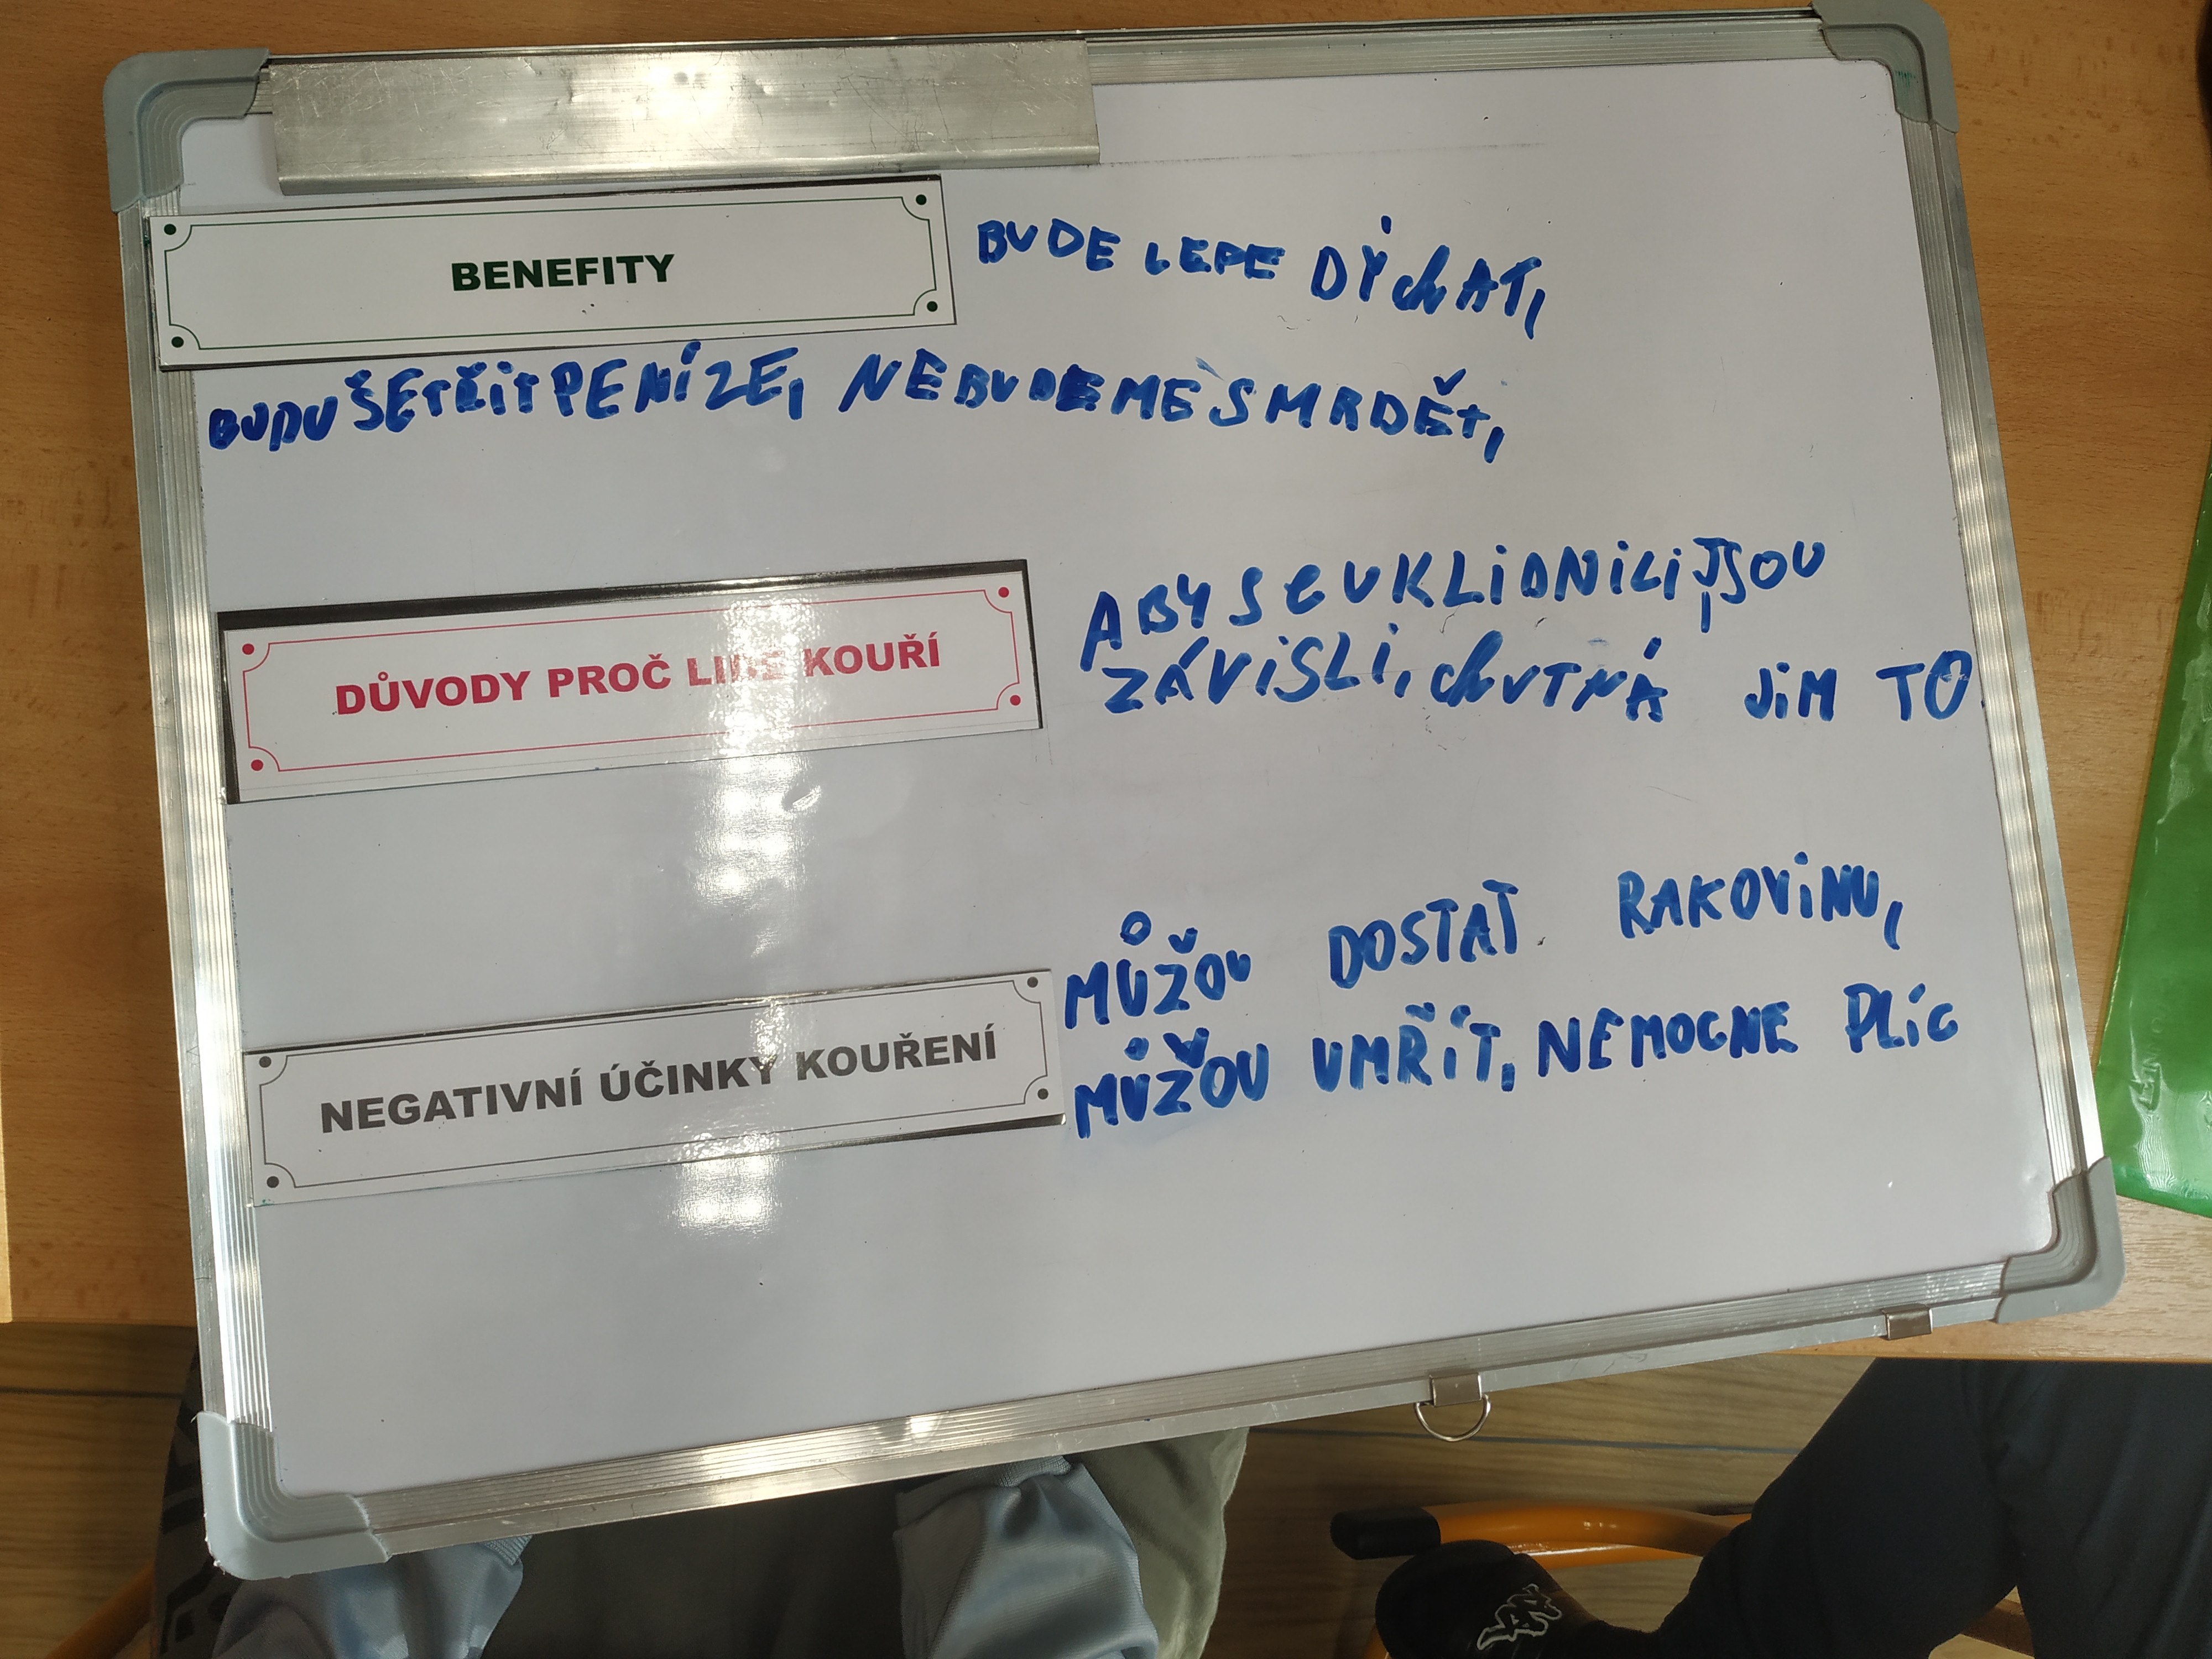 BENEFITY
BUDE LEPE DÝchAT,
BUDU ŠETŘiT PENÍZE, NEBUDEME SMRDĚT,
DŮVODY PROČ LIDÉ KOUŘÍ
ABY SE UKLiDNiLi, JSOU
ZÁViSLí, chUTNÁ JiM TO.
NEGATIVNÍ ÚČINKY KOUŘENÍ
MŮŽOU DOSTAT RAKOViNU,
MŮŽOU UMŘÍT, NEMOCNE PLíC